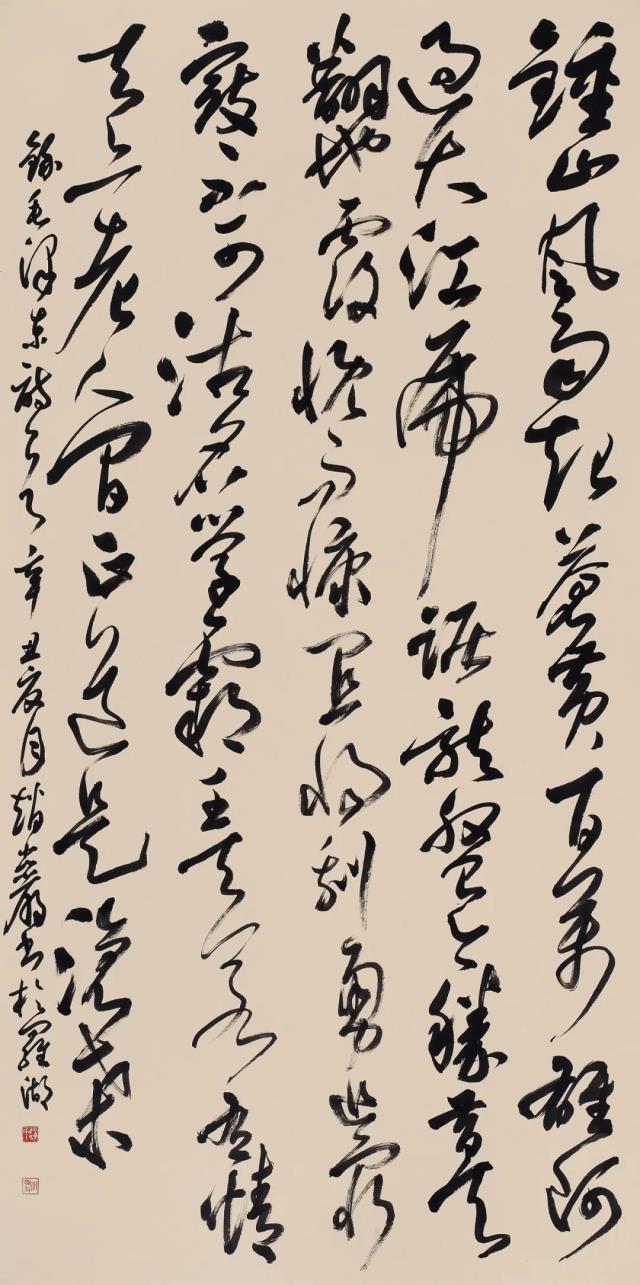 鍾山風雨起蒼黃百萬雄師
過大江虎踞龍盤今勝昔天
翻地覆慨而慷宜將剩勇追窮
寇不可沽名學霸王天若有情
天亦老人間正道是滄桑
錄毛澤東詩 辛丑夏月趙 書於羅湖